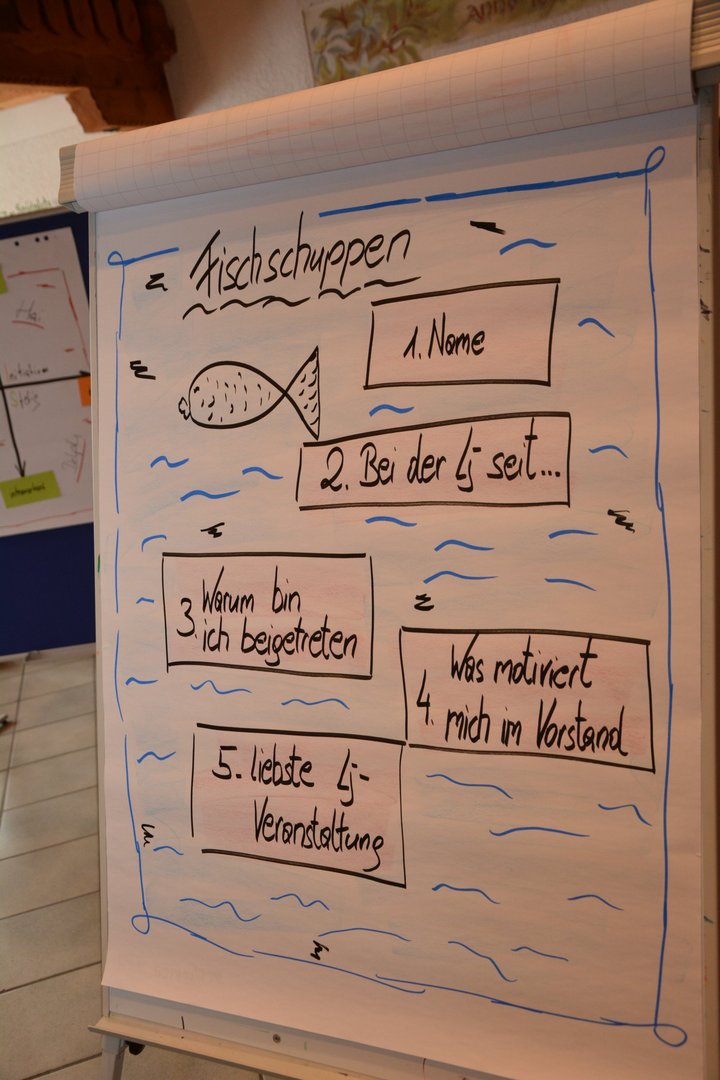 Fischschuppen
1. Name
2. Bei der Lj seit...
3. Warum bin
ich beigetreten
4. Was motiviert
mich im Vorstand
5. liebste Lj-
Veranstaltung